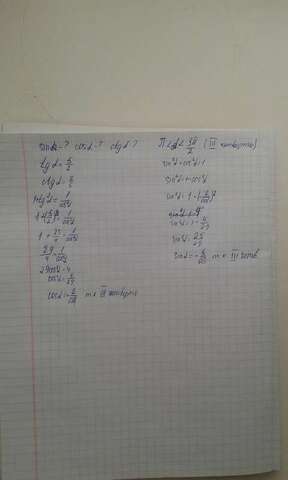 sinα-? cosα-? ctgα-?
tgα=5/2
ctgα=2/5
1+tg²α=1/cos²α
1+(5/2)²=1/cos²α
1+25/4=1/cos²α
29/4=1/cos²α
29cos²α=4
cos²α=4/29
cosα=-2/√29 т.к III четверть
π<α<3π/2 (III четверть)
sin²α+cos²α=1
sin²α=1-cos²α
sin²α=1-(2/√29)²
sin²α=1-4/29
sin²α=25/29
sinα=-5/√29 т.к III четв